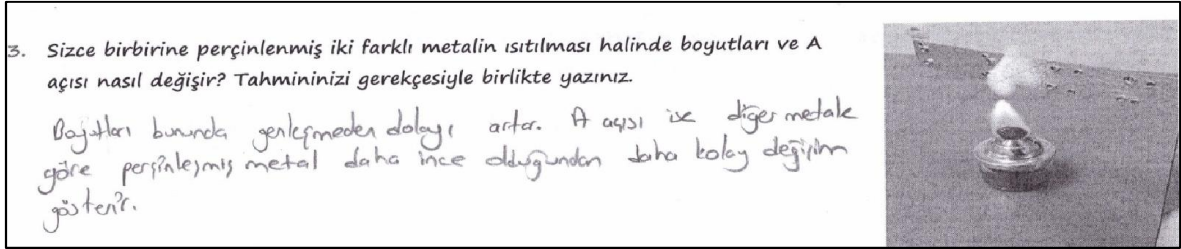 3. Sizce birbirine perçinlenmiş iki farklı metalin ısıtılması halinde boyutları ve A
açısı nasıl değişir? Tahmininizi gerekçesiyle birlikte yazınız.
Boyutları bununda genleşmeden dolayı artar. A açısı ise diğer metale
göre perşinleşmiş metal daha ince olduğundan daha kolay değişim
gösterir.